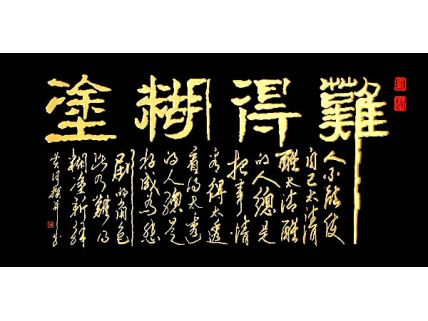 難得糊塗
人不能使
自己太清
醒太清醒
的人總是
把事情
看得太透
看得太透
的人總是
成為悲
劇的角色
此乃難得
糊塗新解